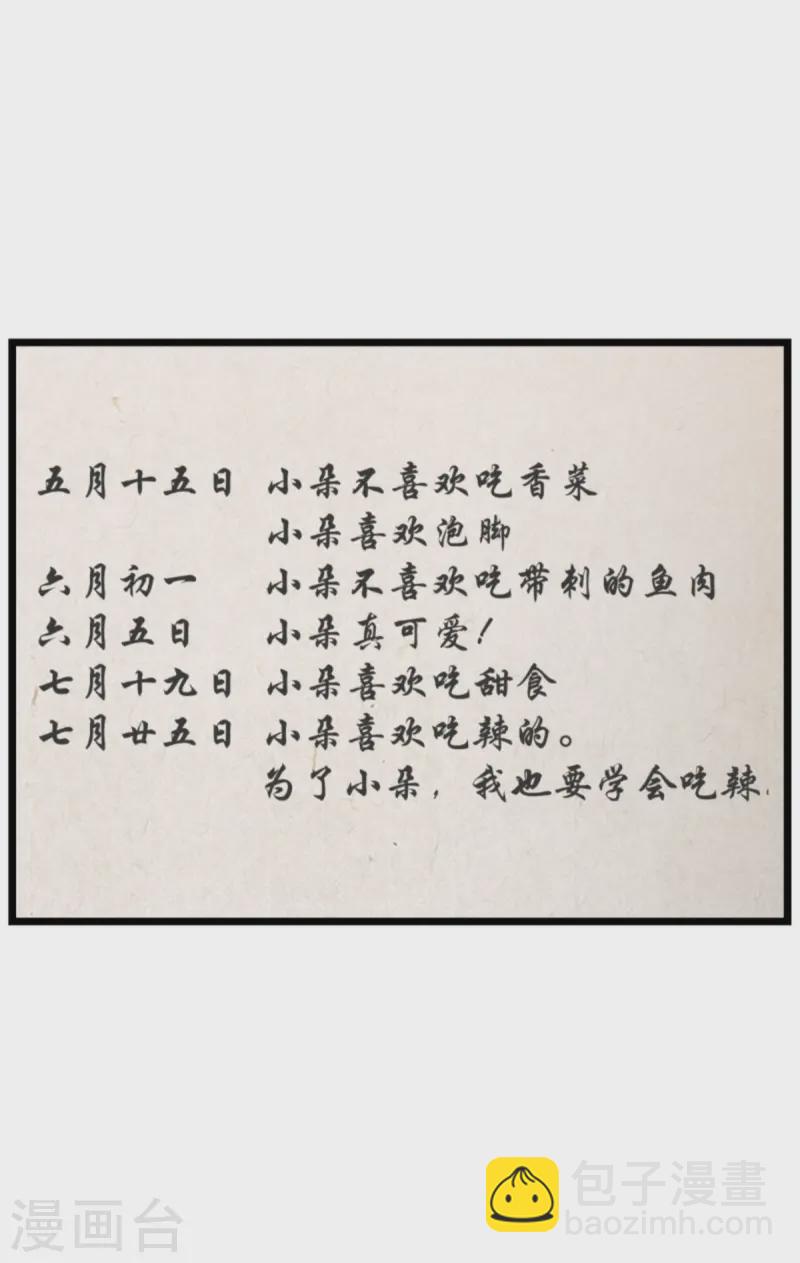 五月十五日 小朵不喜欢吃香菜
小朵喜欢泡脚
六月初一 小朵不喜欢吃带刺的鱼肉
六月五日 小朵真可爱!
七月十九日 小朵喜欢吃甜食
七月廿五日 小朵喜欢吃辣的。
为了小朵，我也要学会吃辣.
包子漫畫
baozimh.com
漫画台